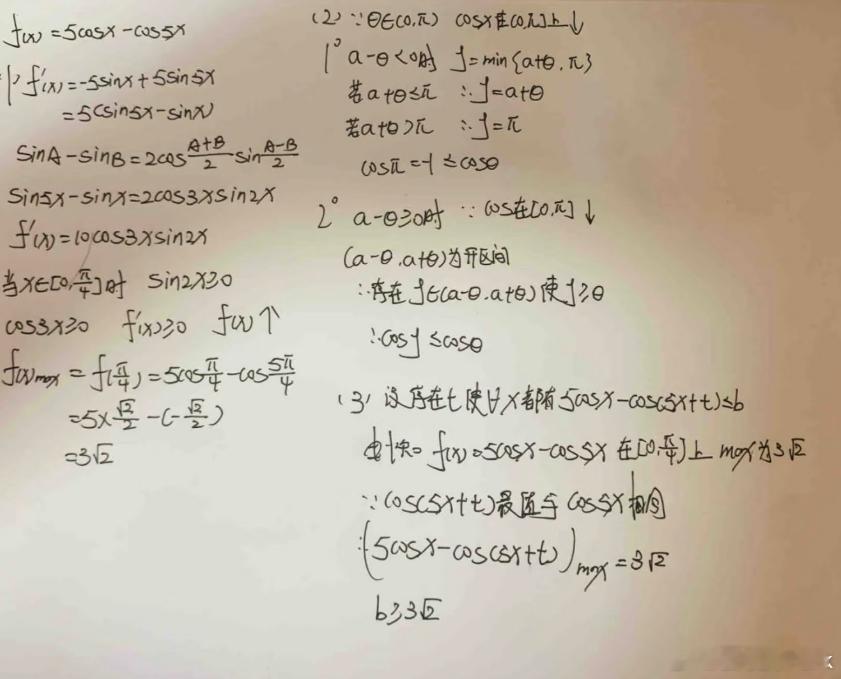 f(x) = 5cosx - cos5x
(1) f'(x) = -5sinx + 5sin5x
= 5(sin5x - sinx)
sinA - sinB = 2cos\frac{A+B}{2} sin\frac{A-B}{2}
sin5x - sinx = 2cos3xsin2x
f'(x) = 10cos3xsin2x
当x∈[0,\frac{π}{4}]时 sin2x≥0
cos3x≥0 f'(x)≥0 f(x)↑
f(x)max = f(\frac{π}{4}) = 5cos\frac{π}{4} - cos\frac{5π}{4}
= 5×\frac{√2}{2} - (-\frac{√2}{2})
= 3√2
(2) ∵θ∈(0,π) cosx在(0,π)上↓
1° a-θ<0时 y=min{a+θ,π}
若a+θ≤π ∴y=a+θ
若a+θ>π ∴y=π
cosπ=-1≤cosθ
2° a-θ≥0时 ∵cos在[0,π]↓
(a-θ,a+θ)为开区间
∴存在y∈(a-θ,a+θ)使y≥θ
∴cosy≤cosθ
(3) 设存在t使∀x都有5cosx-cos(5x+t)≤b
由(1)知 f(x)=5cosx-cos5x在[0,\frac{π}{4}]上max为3√2
∵cos(5x+t)最值与cos5x相同
∴(5cosx-cos(5x+t))max=3√2
b≥3√2